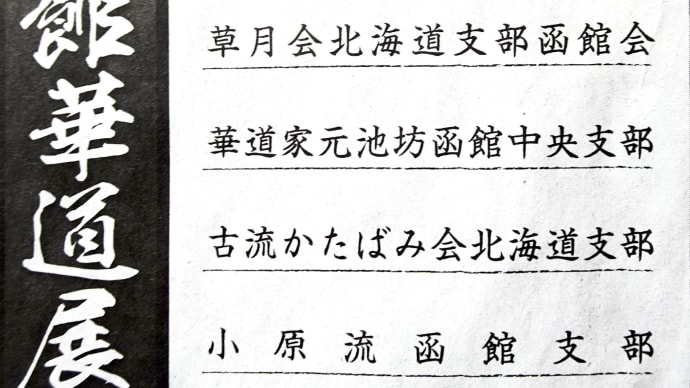 館華道展
草月会北海道支部函館会
華道家元池坊函館中央支部
古流かたばみ会北海道支部
小原流函館支部